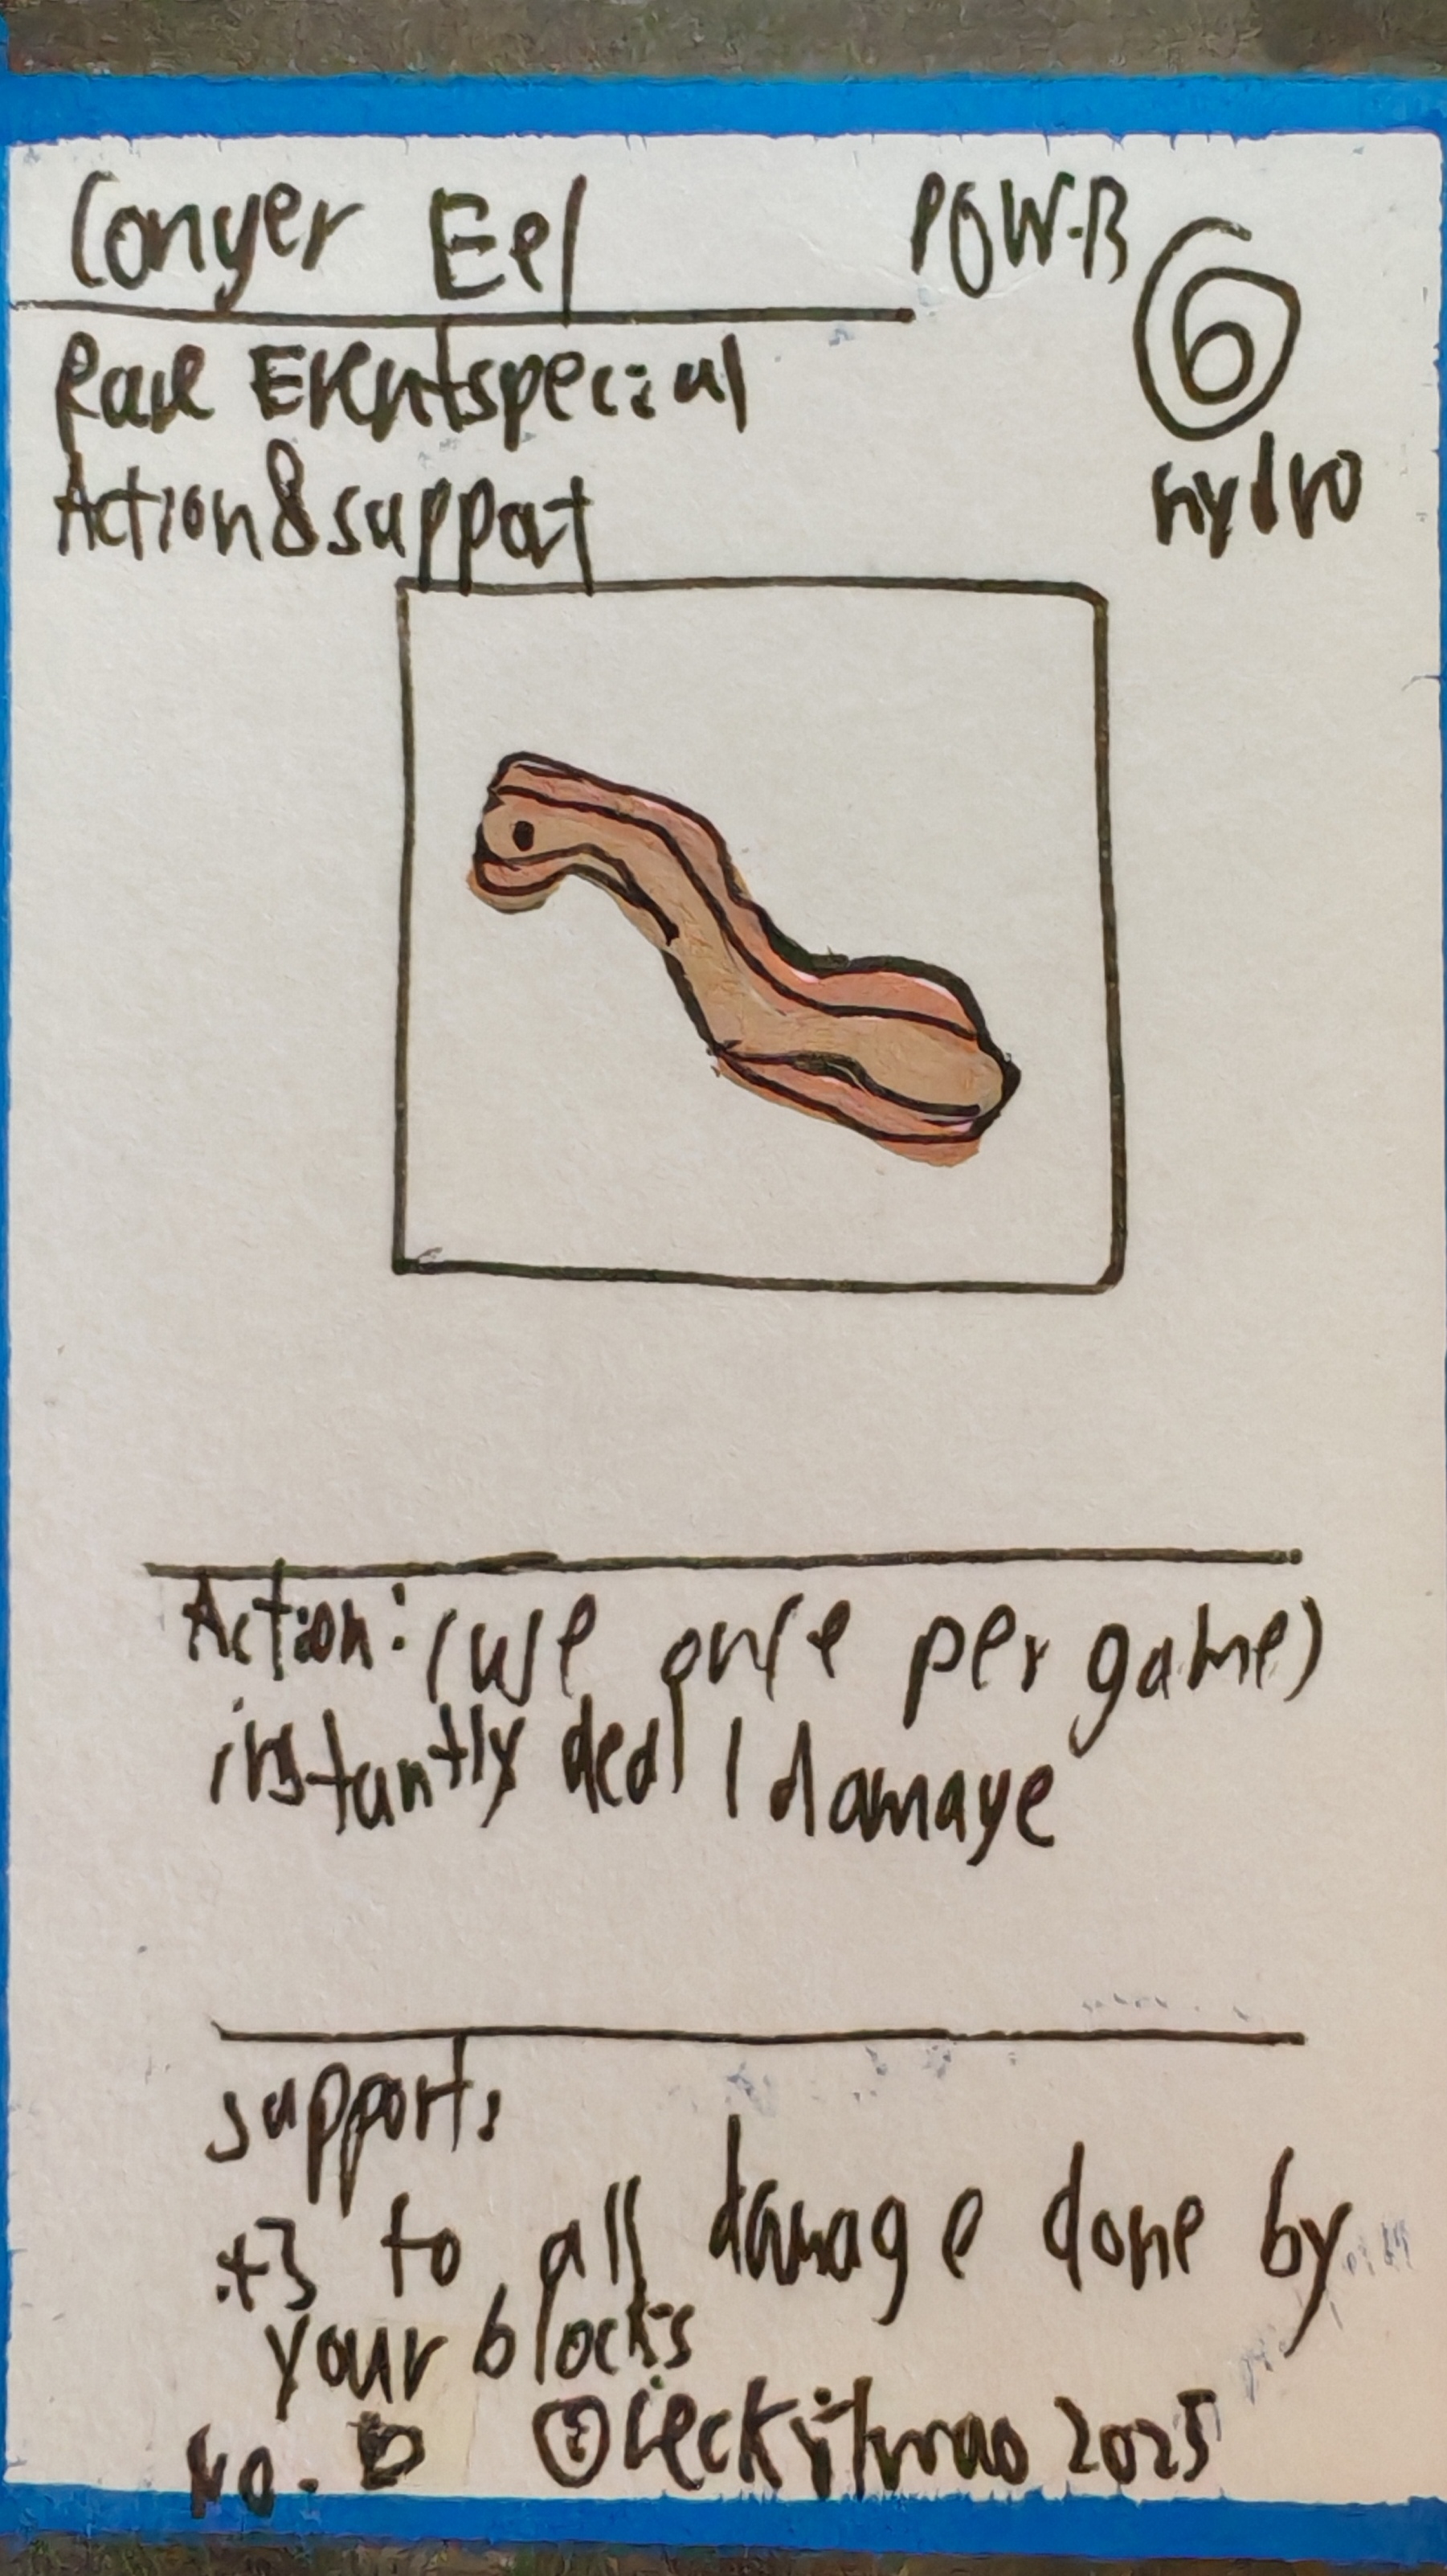 Conger Eel
POW-B
6
Rare Event special
Action & support
hydro
Action: (use once per game)
instantly deal 1 damage
support:
+3 to all damage done by
your blocks
No.
2025